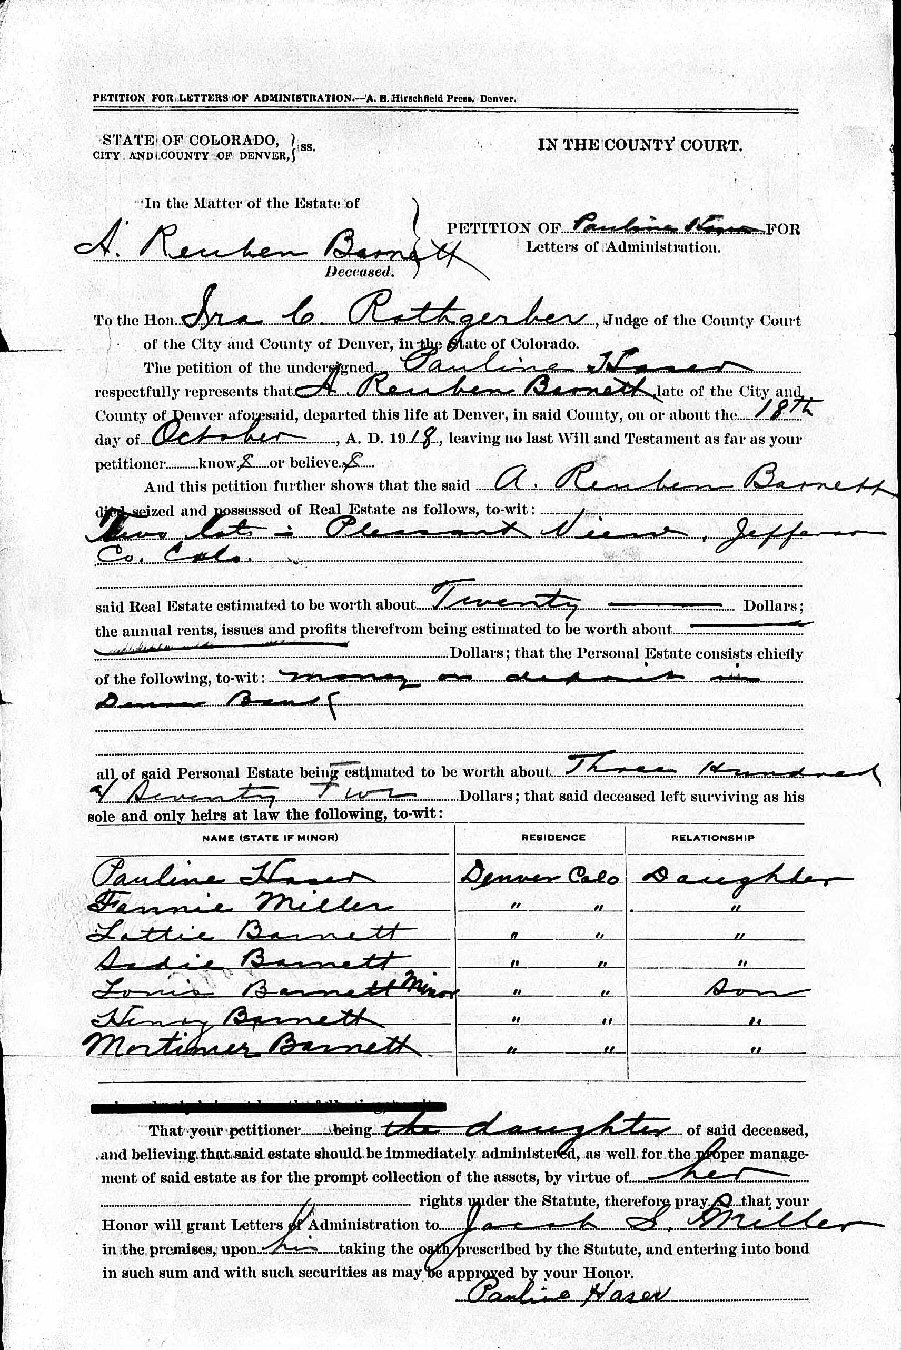 PETITION FOR LETTERS OF ADMINISTRATION.—A. B. Hirschfield Press, Denver.
STATE OF COLORADO, } ss.
CITY AND COUNTY OF DENVER,
IN THE COUNTY COURT.
In the Matter of the Estate of
A. Reuben Barnett
Deceased.
PETITION OF Pauline Haser FOR
Letters of Administration.
To the Hon. Ira C. Rothgerber, Judge of the County Court
of the City and County of Denver, in the State of Colorado.
The petition of the undersigned Pauline Haser
respectfully represents that A. Reuben Barnett late of the City and
County of Denver aforesaid, departed this life at Denver, in said County, on or about the 18th
day of October, A. D. 1918, leaving no last Will and Testament as far as your
petitioner knows or believes
And this petition further shows that the said A. Reuben Barnett
died seized and possessed of Real Estate as follows, to-wit:
Two lots - Pleasant View, Jefferson
Co. Colo.
said Real Estate estimated to be worth about Twenty Dollars;
the annual rents, issues and profits therefrom being estimated to be worth about
Dollars; that the Personal Estate consists chiefly
of the following, to-wit: money on deposit in
Denver Bank
all of said Personal Estate being estimated to be worth about Three Hundred
& Seventy Two Dollars; that said deceased left surviving as his
sole and only heirs at law the following, to-wit:
NAME (STATE IF MINOR) RESIDENCE RELATIONSHIP
Pauline Haser Denver Colo Daughter
Fannie Miller " " "
Lottie Barnett " " "
Sadie Barnett " " "
Louis Barnett Minor " " Son
Henry Barnett " " "
Mortimer Barnett " " "
That your petitioner being the daughter of said deceased,
and believing that said estate should be immediately administered, as well for the proper manage-
ment of said estate as for the prompt collection of the assets, by virtue of her
rights under the Statute, therefore prays that your
Honor will grant Letters of Administration to Jacob S. Miller
in the premises, upon his taking the oath prescribed by the Statute, and entering into bond
in such sum and with such securities as may be approved by your Honor.
Pauline Haser